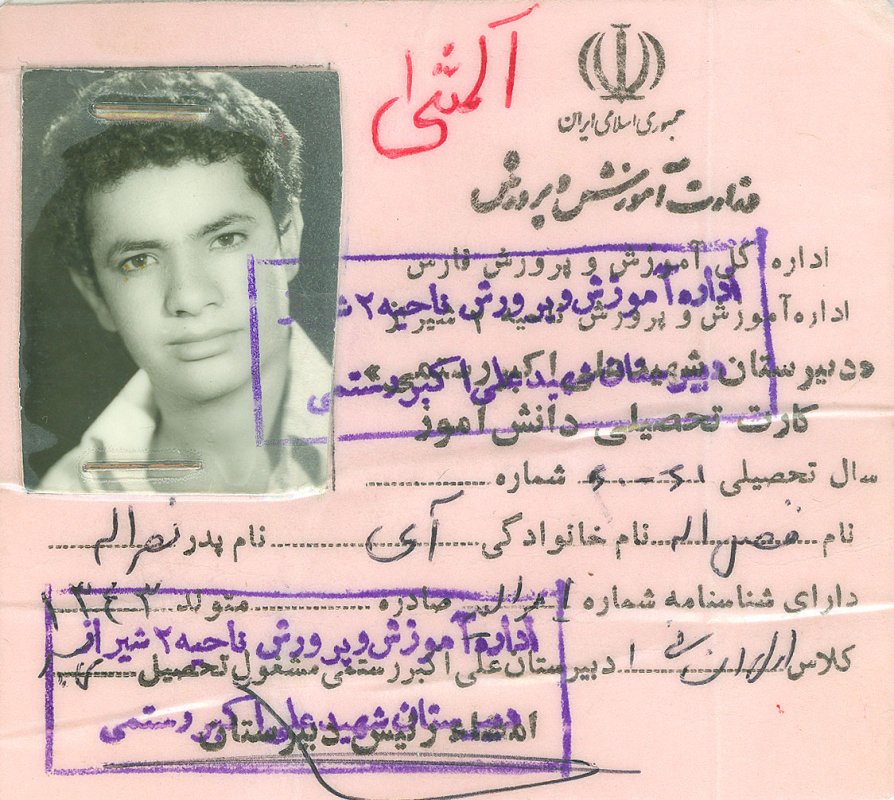 المثنی
جمهوری اسلامی ایران
وزارت آموزش و پرورش
اداره کل آموزش و پرورش فارس
اداره آموزش و پرورش ناحیه ۲ شیراز
اداره آموزش و پرورش ناحیه ۲ شیراز
«دبیرستان شهید علی اکبر رستمی»
دبیرستان شهید علی اکبر رستمی
کارت تحصیلی دانش آموز
سال تحصیلی ۶۱-۶۰ شماره
نام فضل اله نام خانوادگی آی نام پدر نصراله
دارای شناسنامه شماره صادره متولد ۱۳۴۳
کلاس دبیرستان علی اکبر رستمی مشغول تحصیل
اداره آموزش و پرورش ناحیه ۲ شیراز
دبیرستان شهید علی اکبر رستمی
امضاء رئیس دبیرستان